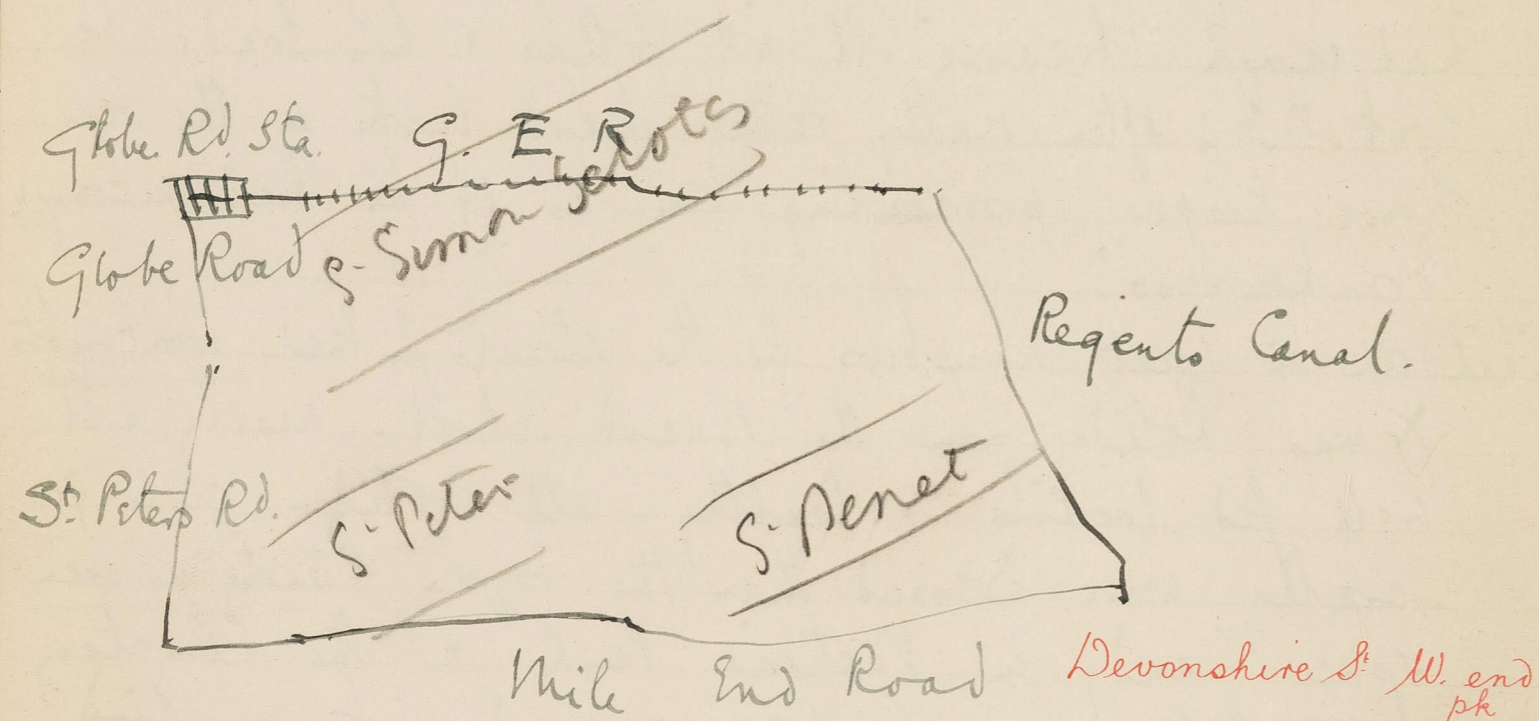 Globe. Rd. Sta.
G. E. R
Globe Road
S. Simon Zelotes
Regents Canal.
St. Peters Rd.
S. Peter
S. Benet
Mile End Road
Devonshire St. W. end
pk